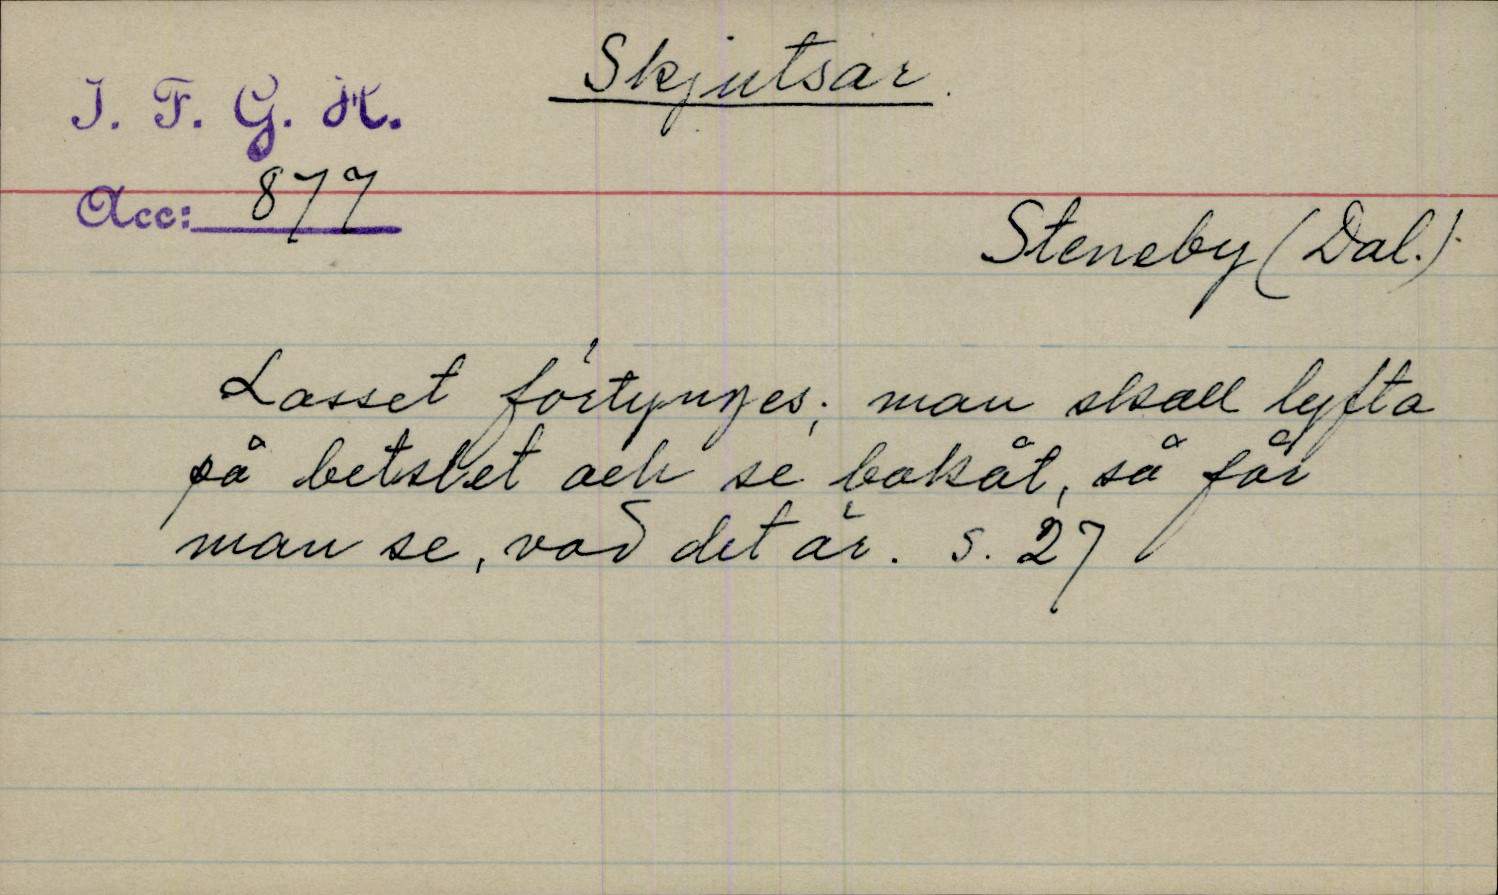 Skjutsar.
I. F. G. H.
Acc: 877
Steneby (Dal.).
Lasset förtynges; man skall lyfta
på betslet och se bakåt, så får
man se, vad det är. s. 27